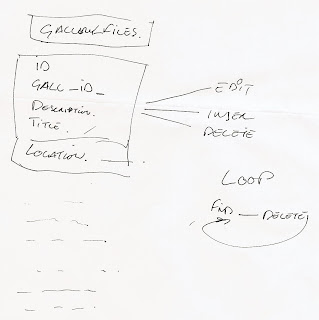 ID
GALL_ID_
DESCRIPTION.
TITLE.
LOCATION.
EDIT
INSER
DELETE
LOOP
FIND — DELETE